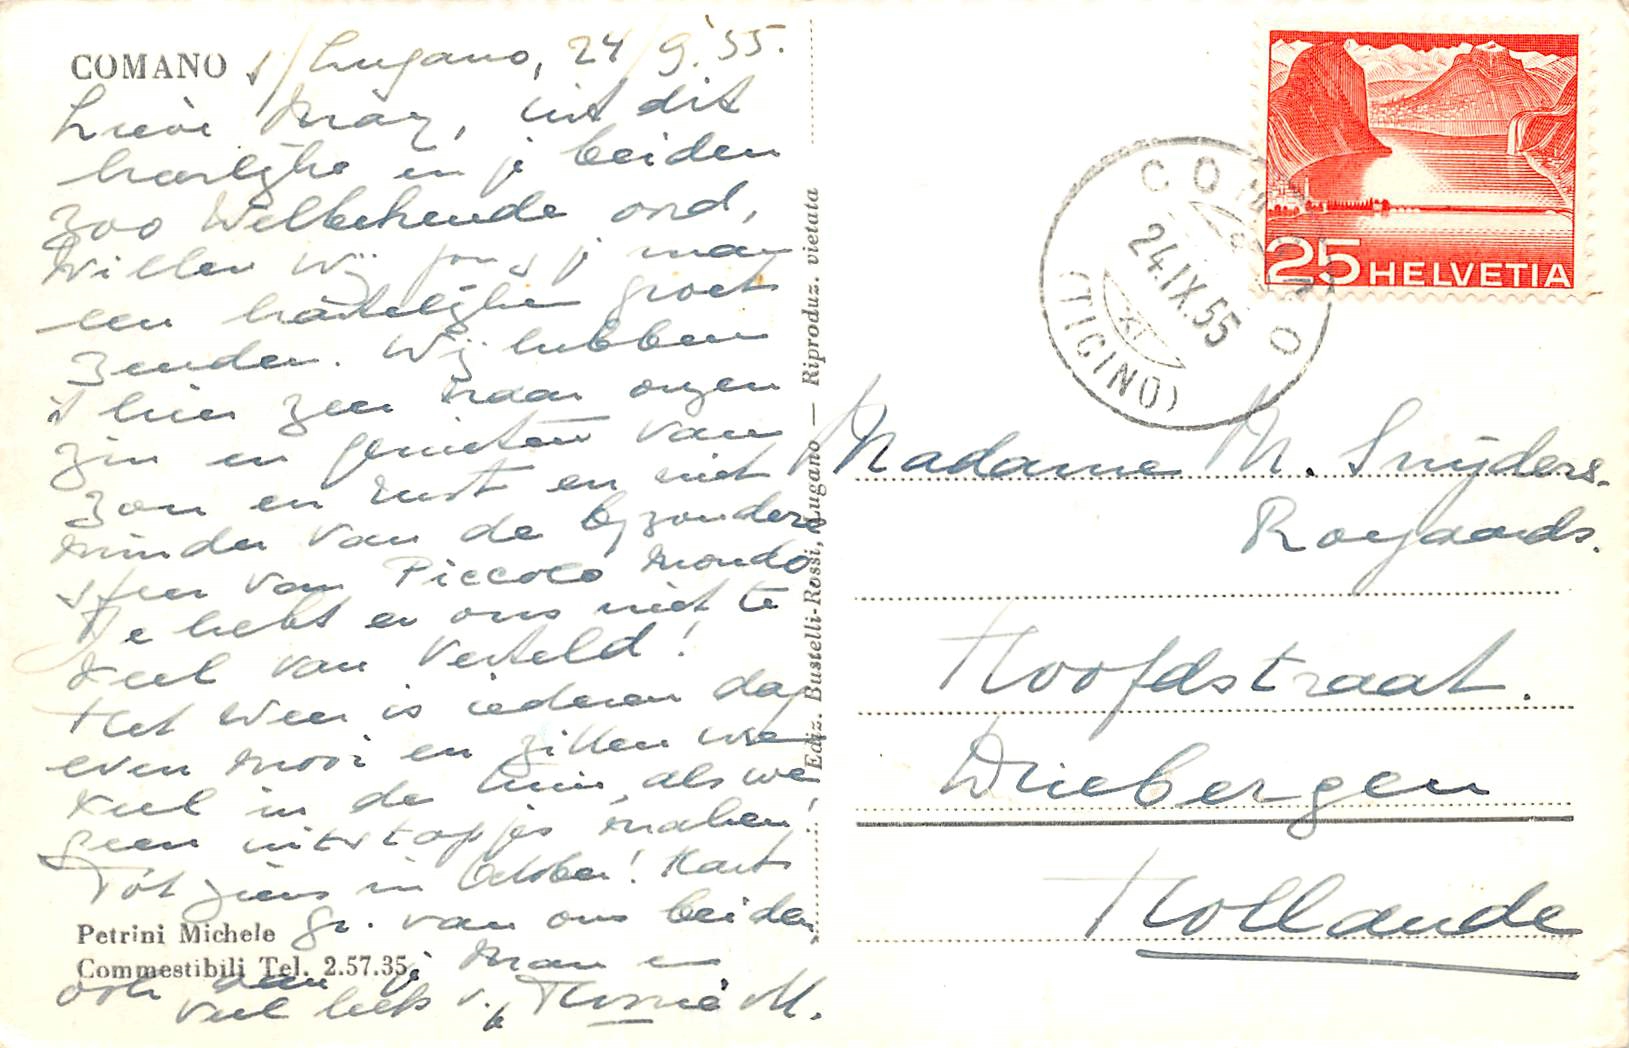 COMANO s/ Lugano, 24/9.'55.
Lieve May, uit dit
heerlijke en je beiden
zoo welbekende oord,
willen wij jou, je man
een hartelijken groet
zenden. Wij hebben
't hier zeer naar onzen
zin en genieten van
zon en rust en niet
minder van de byzondere
sfeer van Piccolo Mondo
Je hebt er ons niet te
veel van verteld!
Het weer is iederen dag
even mooi en zitten we
veel in de tuin, als we
geen uitstapjes maken,
Tot ziens in October! Harts
gr. van ons beiden
ook aan je man en
veel liefs v. M.
Petrini Michele
Commestibili Tel. 2.57.35
Ediz. Bustelli-Rossi, Lugano — Riproduz. vietata
25 HELVETIA
COMANO
24.IX.55
XI
(TICINO)
Madame M. Snijders.
Royaards.
Hoofdstraat.
Driebergen
Hollande